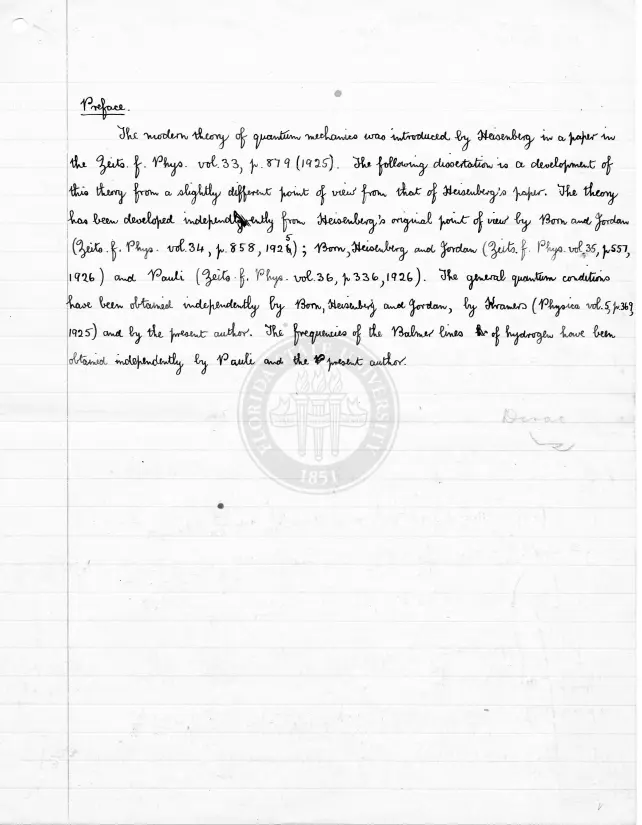 Preface.
The modern theory of quantum mechanics was introduced by Heisenberg in a paper in
the Zeits. f. Phys. vol. 33, p. 879 (1925). The following dissertation is a development of
this theory from a slightly different point of view from that of Heisenberg's paper. The theory
has been developed independently from Heisenberg's original point of view by Born and Jordan
(Zeits. f. Phys. vol. 34, p. 858, 1925); Born, Heisenberg and Jordan (Zeits. f. Phys. vol. 35, p. 557,
1926) and Pauli (Zeits. f. Phys. vol. 36, p. 336, 1926). The general quantum conditions
have been obtained independently by Born, Heisenberg and Jordan, by Kramers (Physica vol. 5, p. 369,
1925) and by the present author. The frequencies of the Balmer lines of hydrogen have been
obtained independently by Pauli and the present author.
Dirac
FLORIDA STATE UNIVERSITY
1851